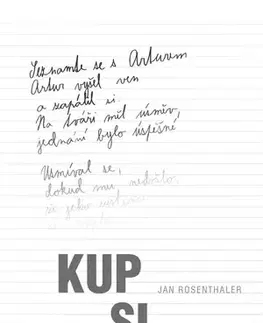 Seznamte se s Arturem
Artur vyšel ven
a zapálil si.
Na tváři měl úsměv,
jednání bylo úspěšné,
Usmíval se,
dokud mu nedošlo,
že jeho
KUP
JAN ROSENTHALER
SI